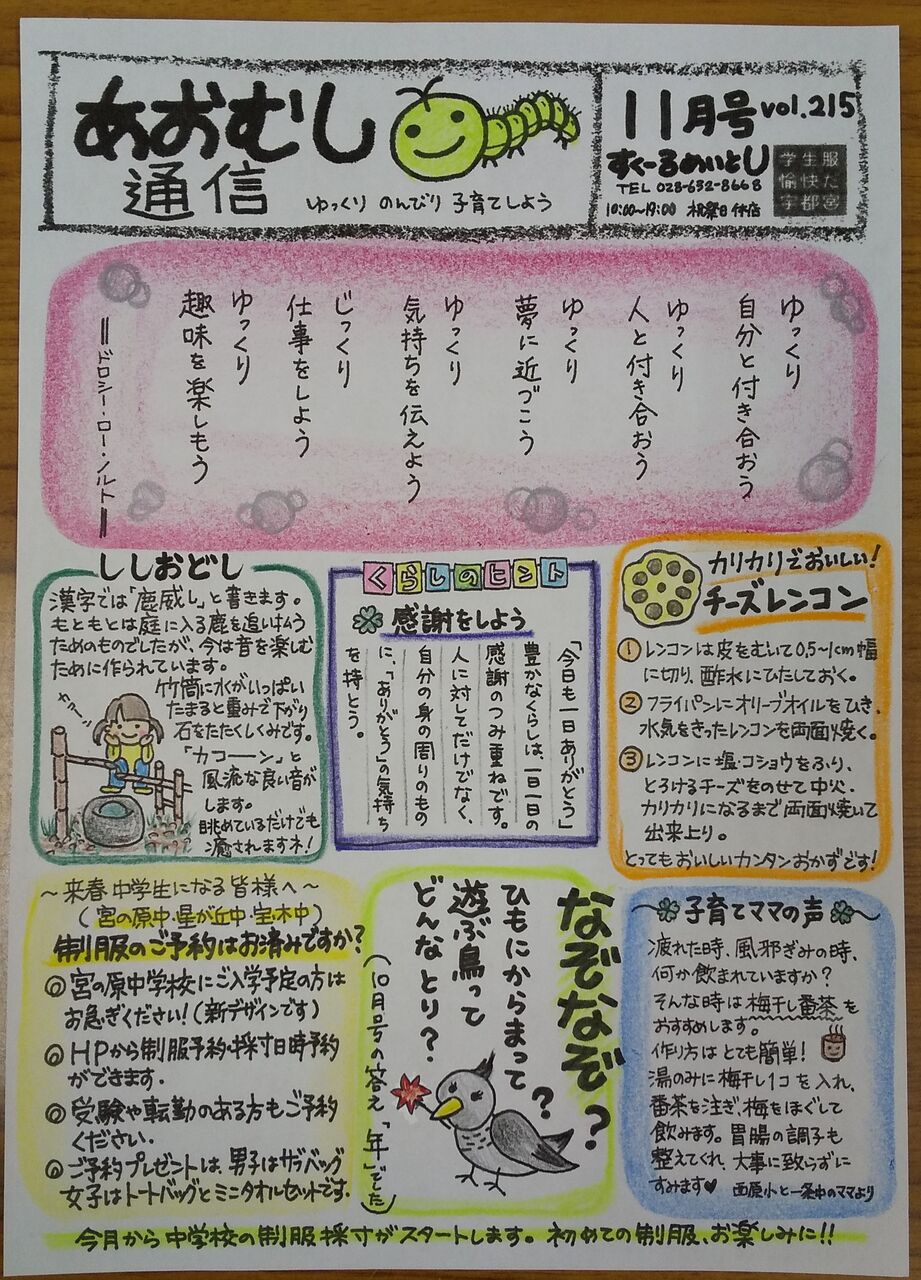 あおむし
通信
ゆっくり のんびり 子育てしよう
11月号 vol.215
すくーるめいとし
TEL 028-652-8668
10:00〜19:00 祝祭日休店
学生服
愉快だ
宇都宮
ゆっくり
自分と付き合おう
ゆっくり
人と付き合おう
ゆっくり
夢に近づこう
ゆっくり
気持ちを伝えよう
じっくり
仕事をしよう
ゆっくり
趣味を楽しもう
＝ドロシー・ロー・ノルト＝
ししおどし
漢字では「鹿威し」と書きます。
もともとは庭に入る鹿を追い払う
ためのものでしたが、今は音を楽しむ
ために作られています。
竹筒に水がいっぱい
たまると重みで下がり
石をたたくしくみです。
「カコーーン」と
風流な良い音が
します。
眺めているだけでも
癒されますネ!
くらしのヒント
感謝をしよう
「今日も一日ありがとう」
豊かなくらしは、一日一日の
感謝のつみ重ねです。
人に対してだけでなく、
自分の身の周りのもの
に、「ありがとう」の気持ち
を持とう。
カリカリでおいしい!
チーズレンコン
① レンコンは皮をむいて0.5〜1cm幅
に切り、酢水にひたしておく。
② フライパンにオリーブオイルをひき、
水気をきったレンコンを両面焼く。
③ レンコンに塩・コショウをふり、
とろけるチーズをのせて中火。
カリカリになるまで両面焼いて
出来上り。
とってもおいしいカンタンおかずです!
〜来春中学生になる皆様へ〜
(宮の原中・星が丘中・宝木中)
制服のご予約はお済みですか?
◎ 宮の原中学校にご入学予定の方は
お急ぎください!(新デザインです)
◎ HPから制服予約・採寸日時予約
ができます.
◎ 受験や転勤のある方もご予約
ください.
◎ ご予約プレゼントは、男子はサブバッグ
女子はトートバッグとミニタオルセットです.
なぞなぞ?
ひもにからまって
遊ぶ鳥って
どんなとり?
?
(10月号の答え「年」でした)
子育てママの声
疲れた時、風邪ぎみの時、
何か飲まれていますか?
そんな時は梅干し番茶を
おすすめします。
作り方はとても簡単!
湯のみに梅干し1コを入れ、
番茶を注ぎ、梅をほぐして
飲みます。胃腸の調子も
整えてくれ、大事に致らずに
すみます♥ 西原小と一条中のママより
今月から中学校の制服採寸がスタートします。初めての制服、お楽しみに!!